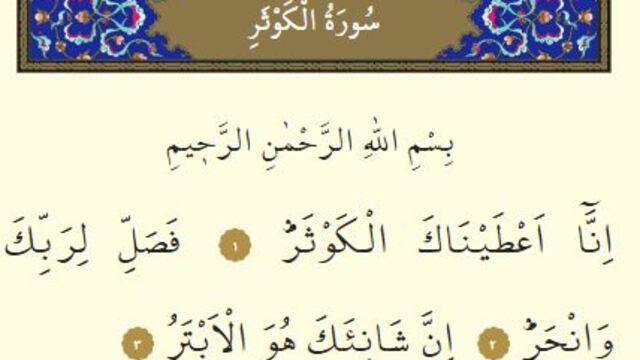 سُورَةُ الْكَوْثَرِ
بِسْمِ اللّٰهِ الرَّحْمٰنِ الرَّحٖيمِ
اِنَّٓا اَعْطَيْنَاكَ الْكَوْثَرَؕ ١ فَصَلِّ لِرَبِّكَ
وَانْحَرْؕ ٢ اِنَّ شَانِئَكَ هُوَ الْاَبْتَرُ ٣